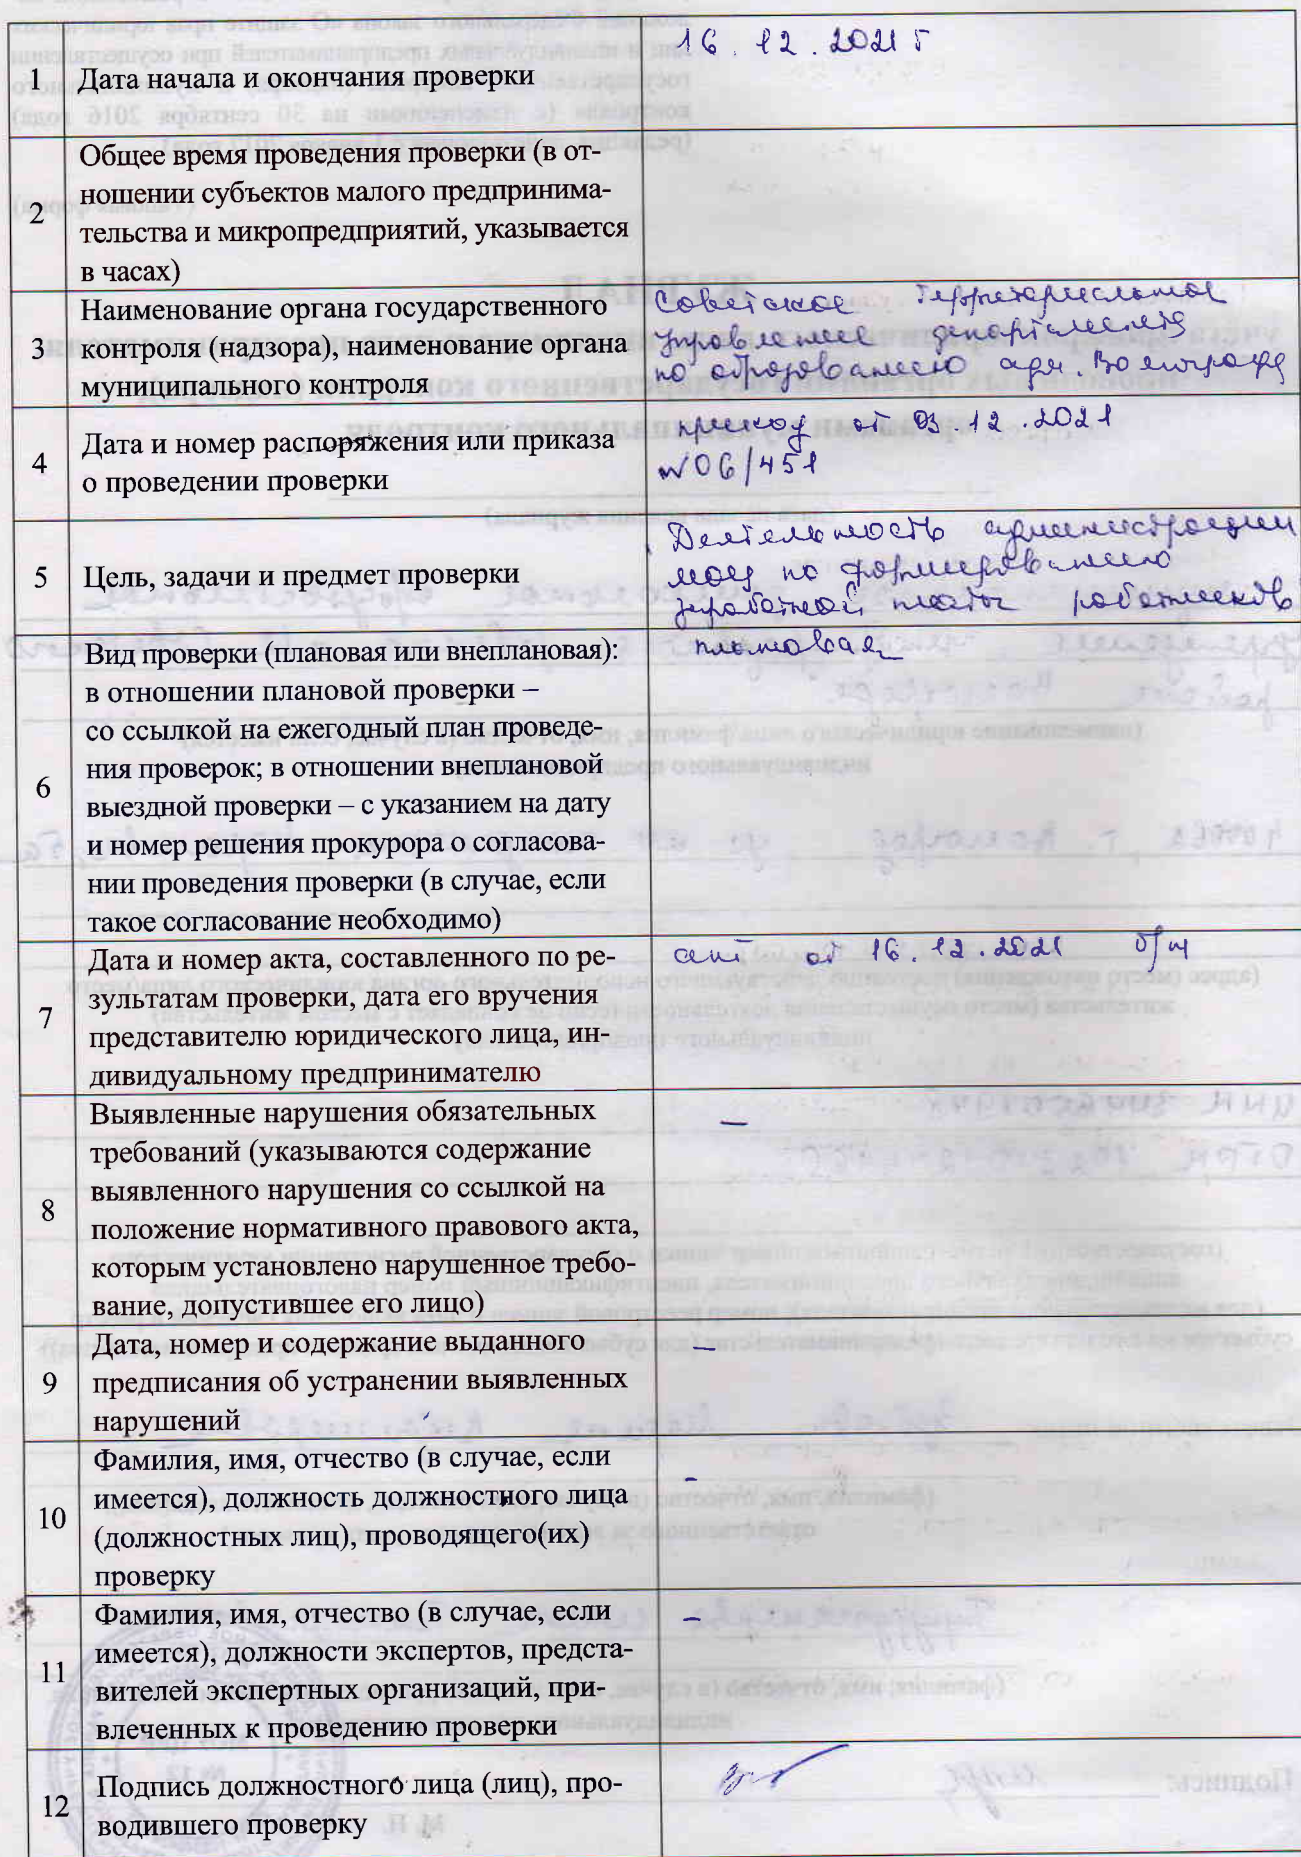 16.12.2021 г
1 Дата начала и окончания проверки
2 Общее время проведения проверки (в от-
ношении субъектов малого предпринима-
тельства и микропредприятий, указывается
в часах)
3 Наименование органа государственного
контроля (надзора), наименование органа
муниципального контроля
Советское территориальное
управление департамента
по образованию адм. Волгограда
4 Дата и номер распоряжения или приказа
о проведении проверки
приказ от 03.12.2021
№06/451
5 Цель, задачи и предмет проверки
Деятельность администрации
МОУ по формированию
заработной платы работников
6 Вид проверки (плановая или внеплановая):
в отношении плановой проверки –
со ссылкой на ежегодный план проведе-
ния проверок; в отношении внеплановой
выездной проверки – с указанием на дату
и номер решения прокурора о согласова-
нии проведения проверки (в случае, если
такое согласование необходимо)
плановая
7 Дата и номер акта, составленного по ре-
зультатам проверки, дата его вручения
представителю юридического лица, ин-
дивидуальному предпринимателю
акт от 16.12.2021 б/н
8 Выявленные нарушения обязательных
требований (указываются содержание
выявленного нарушения со ссылкой на
положение нормативного правового акта,
которым установлено нарушенное требо-
вание, допустившее его лицо)
–
9 Дата, номер и содержание выданного
предписания об устранении выявленных
нарушений
–
10 Фамилия, имя, отчество (в случае, если
имеется), должность должностного лица
(должностных лиц), проводящего(их)
проверку
-
11 Фамилия, имя, отчество (в случае, если
имеется), должности экспертов, предста-
вителей экспертных организаций, при-
влеченных к проведению проверки
–
12 Подпись должностного лица (лиц), про-
водившего проверку